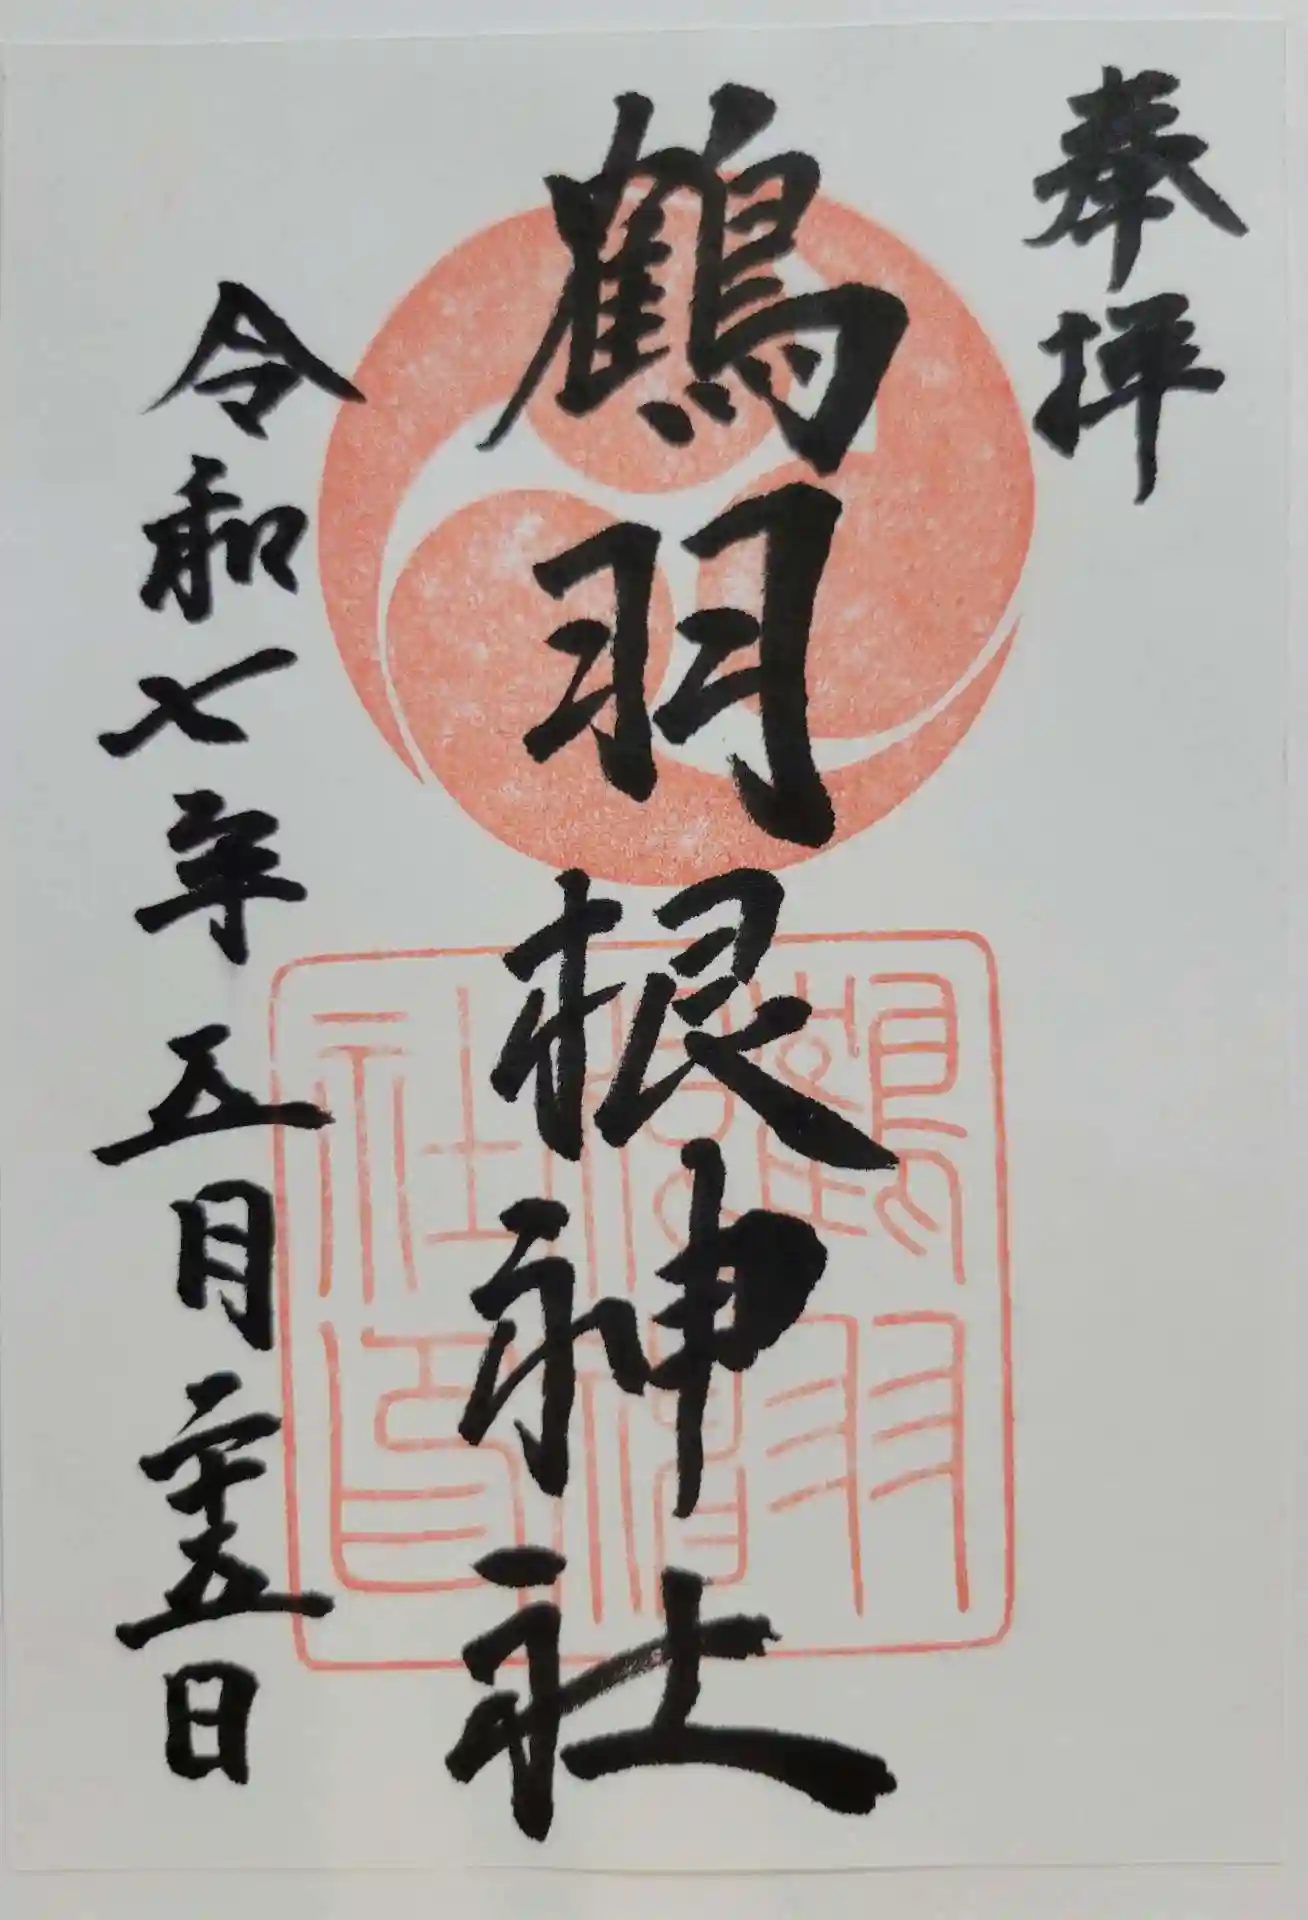 奉拝
鶴羽根神社
令和七年五月二十五日
鶴羽根神社印